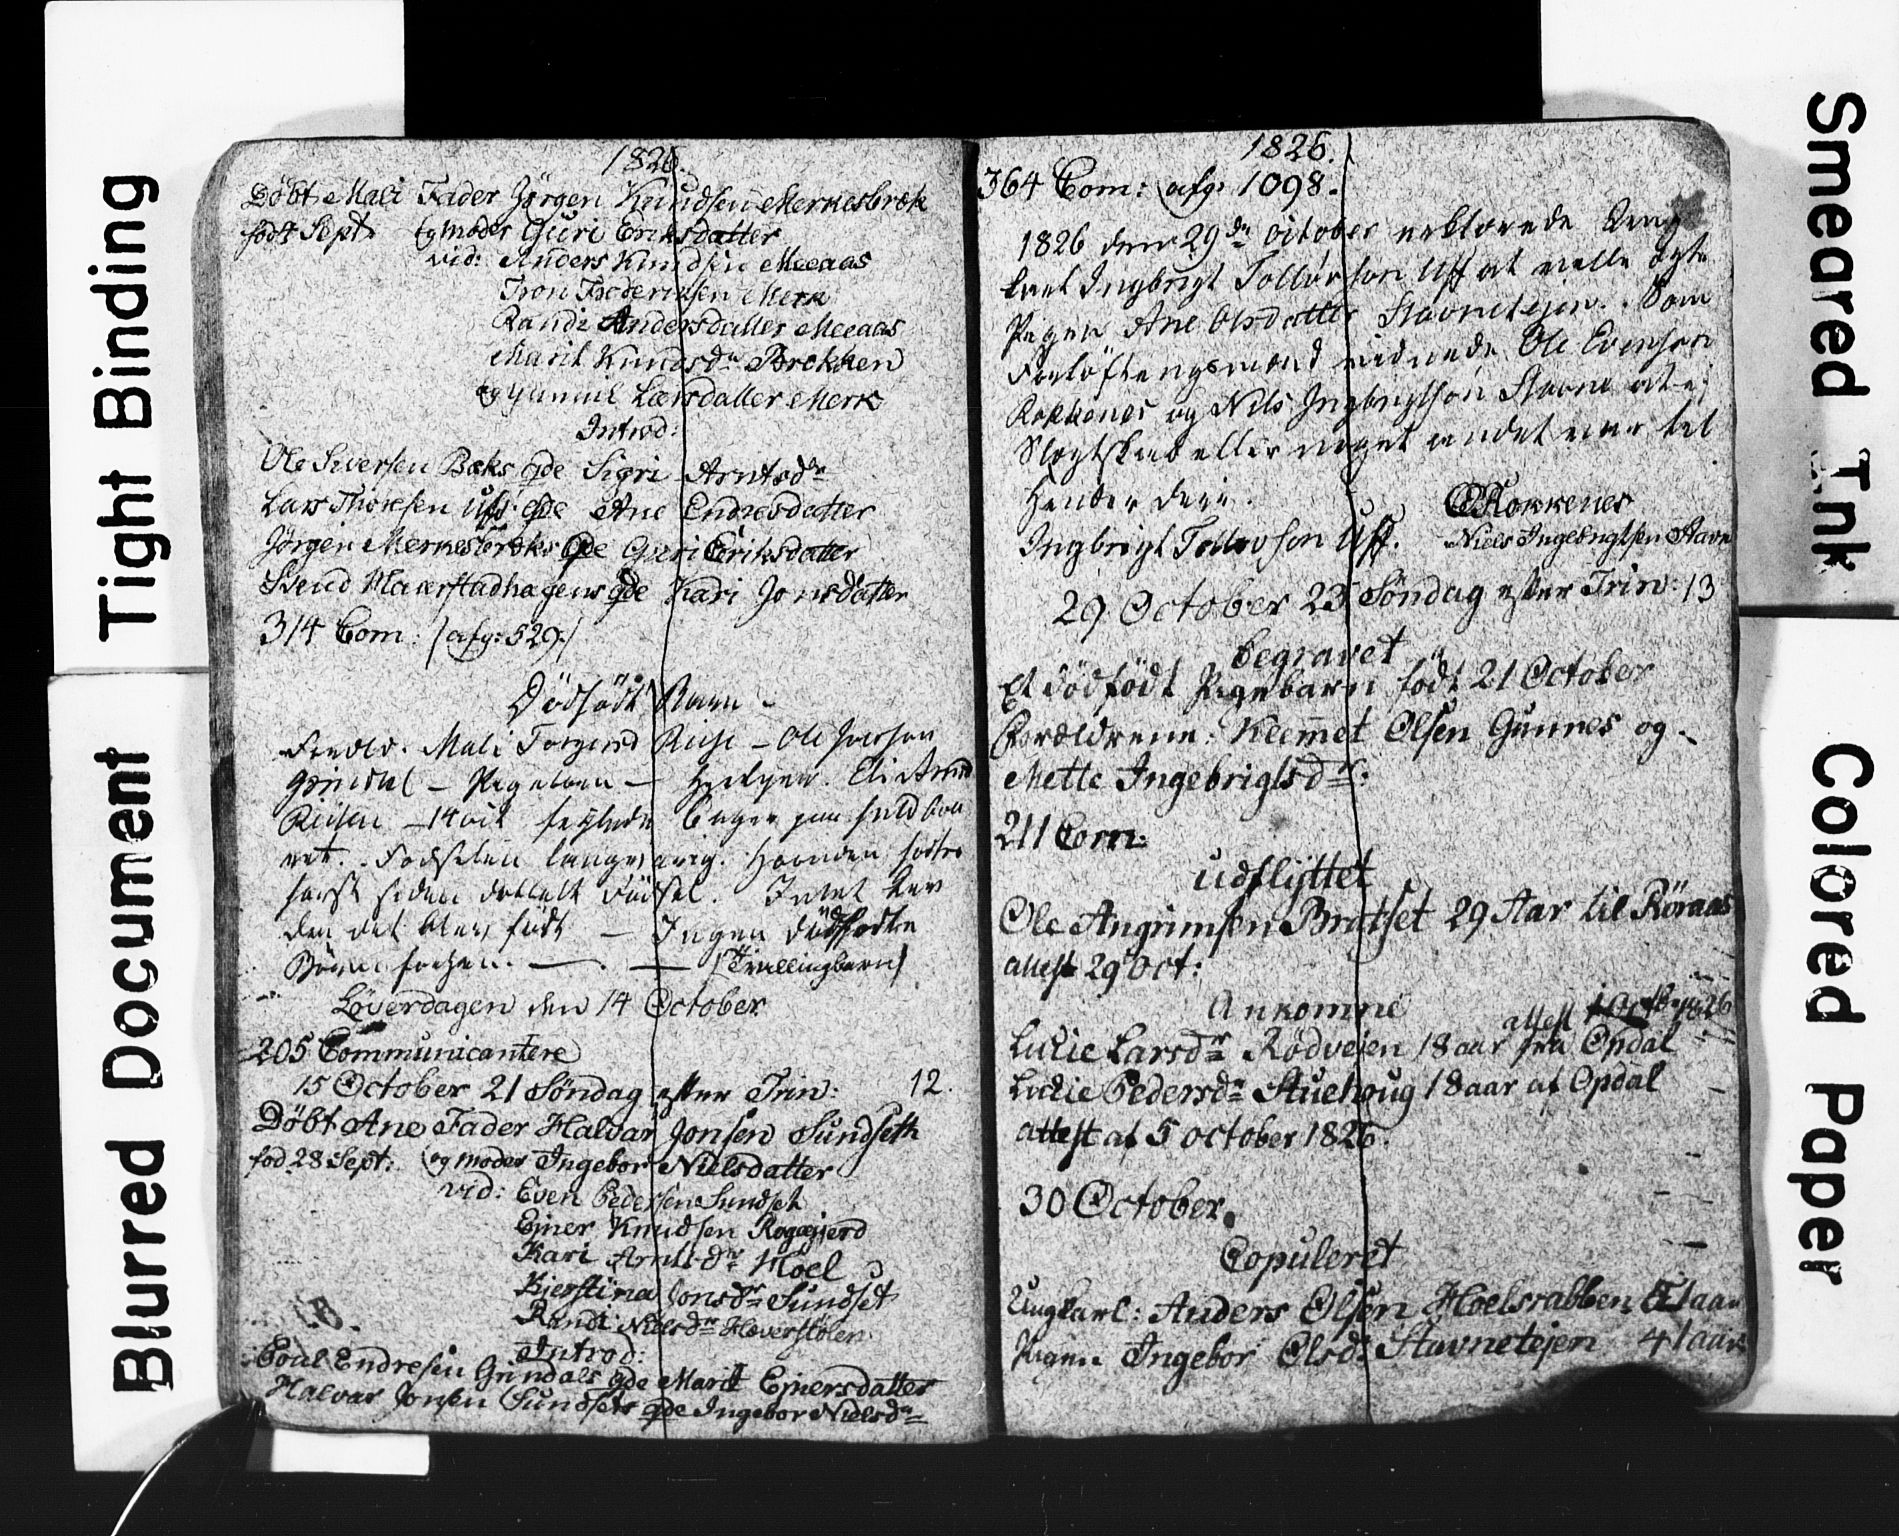 Tight Binding
Blurred Document
Smeared Ink
Colored Paper
1826.
Döbt Mali Fader Jörgen Knudsen Merkesbrek
föd 4 Sept. og moder Guri Eriksdatter
vid: Anders Knudsen Meeaas
Tron Frederiksen Merk
Randi Andersdatter Meeaas
Marit Knudsdr Brekken
og Gunnil Larsdatter Merk
Introd:
Ole Siversen Bæks qde Sigri Arntsdr
Lars Thoresen Uffs qde Ane Endresdatter
Jörgen Merkesbreks qde Guri Eriksdatter
Svend Maurstadhagens qde Kari Jonsdatter
314 Com: (afg: 529.)
Dödfödt Barn
Mali Ole
Grindal - Eli
Fødselen langvarig.
den det blev født - Ingen dödfödte
Börn (Tvillingbarn)
Löverdagen den 14 October
205 Communicantere
15 October 21 Söndag efter Trin: 12.
Döbt Ane Fader Halvar Jonsen Sundseth
föd 28 Sept: og moder Ingebor Nielsdatter
vid: Even Pedersen Sundset
Ejner Knudsen Rogogjerd
Kari Arntsdr Hoel
Kjerstina Jonsdr Sundset
Randi Nielsdr Hæverstölen
Introd:
Poul Endresen Grindals qde Marit Ejnersdatter
Halvar Jonsen Sundsets qde Ingebor Nielsdr
1826.
364 Com: (afg: 1098.
1826 den 29de October erklærede Ung
karl Ingbrigt Tollovson Uff at ville ægte
Pigen Ane Olsdatter Stavnetejen. Som
Forlöftengsmænd vidnede Ole Evenson
Rokkenes og Nils Ingbrigtson Stavne at ej
Slægtskab eller noget andet var til
Hinder derir.
Rokkenes
Ingbrigt Tollovson Uff. Niels Ingebrigtsen Stavn
29 October 23 Söndag efter Trin: 13
begravet
Et dödfödt Pigebarn födt 21 October
Forældrene: Klemmet Olsen Gunnes og
Mette Ingebrigtsdr:
211 Com:
udflÿttet
Ole Angrimsen Bratset 29 Aar til Röraas
attest 29 Oct:
Ankomne
attest 1826
Lucie Larsdr Rödvejen 18 aar fra Opdal
Lucie Pedersdr Stuehoug 18 aar af Opdal
attest af 5 October 1826.
30 October.
Copuleret
Ungkarl: Anders Olsen Hoelsrabben aar
Pigen Ingebor Olsdr Stavnetejen 41 aar